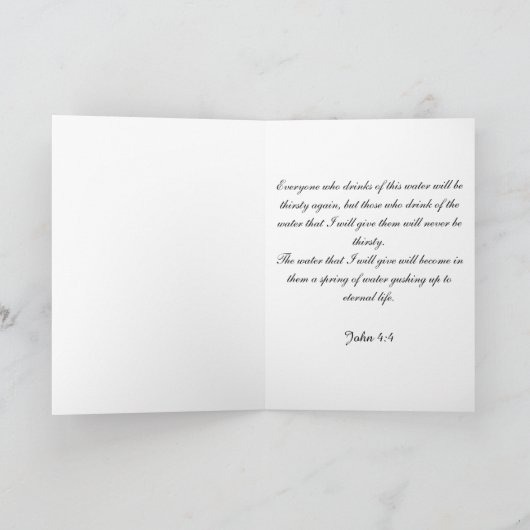 Everyone who drinks of this water will be
thirsty again, but those who drink of the
water that I will give them will never be
thirsty.
The water that I will give will become in
them a spring of water gushing up to
eternal life.
John 4:4